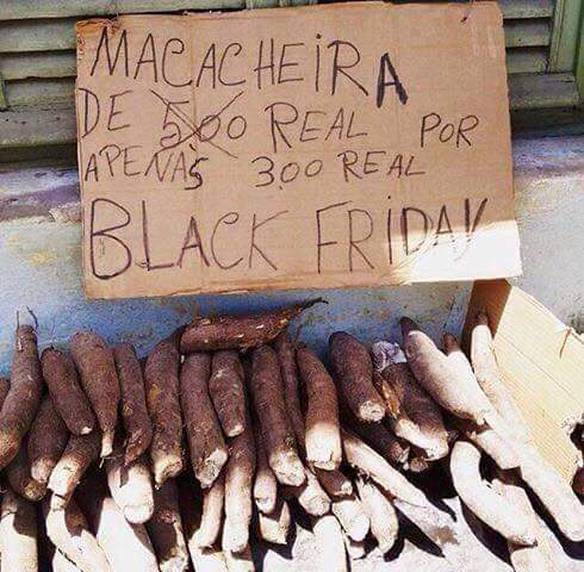 MACACHEIRA
DE 5,00 REAL POR
APENAS 3.00 REAL
BLACK FRIDAY